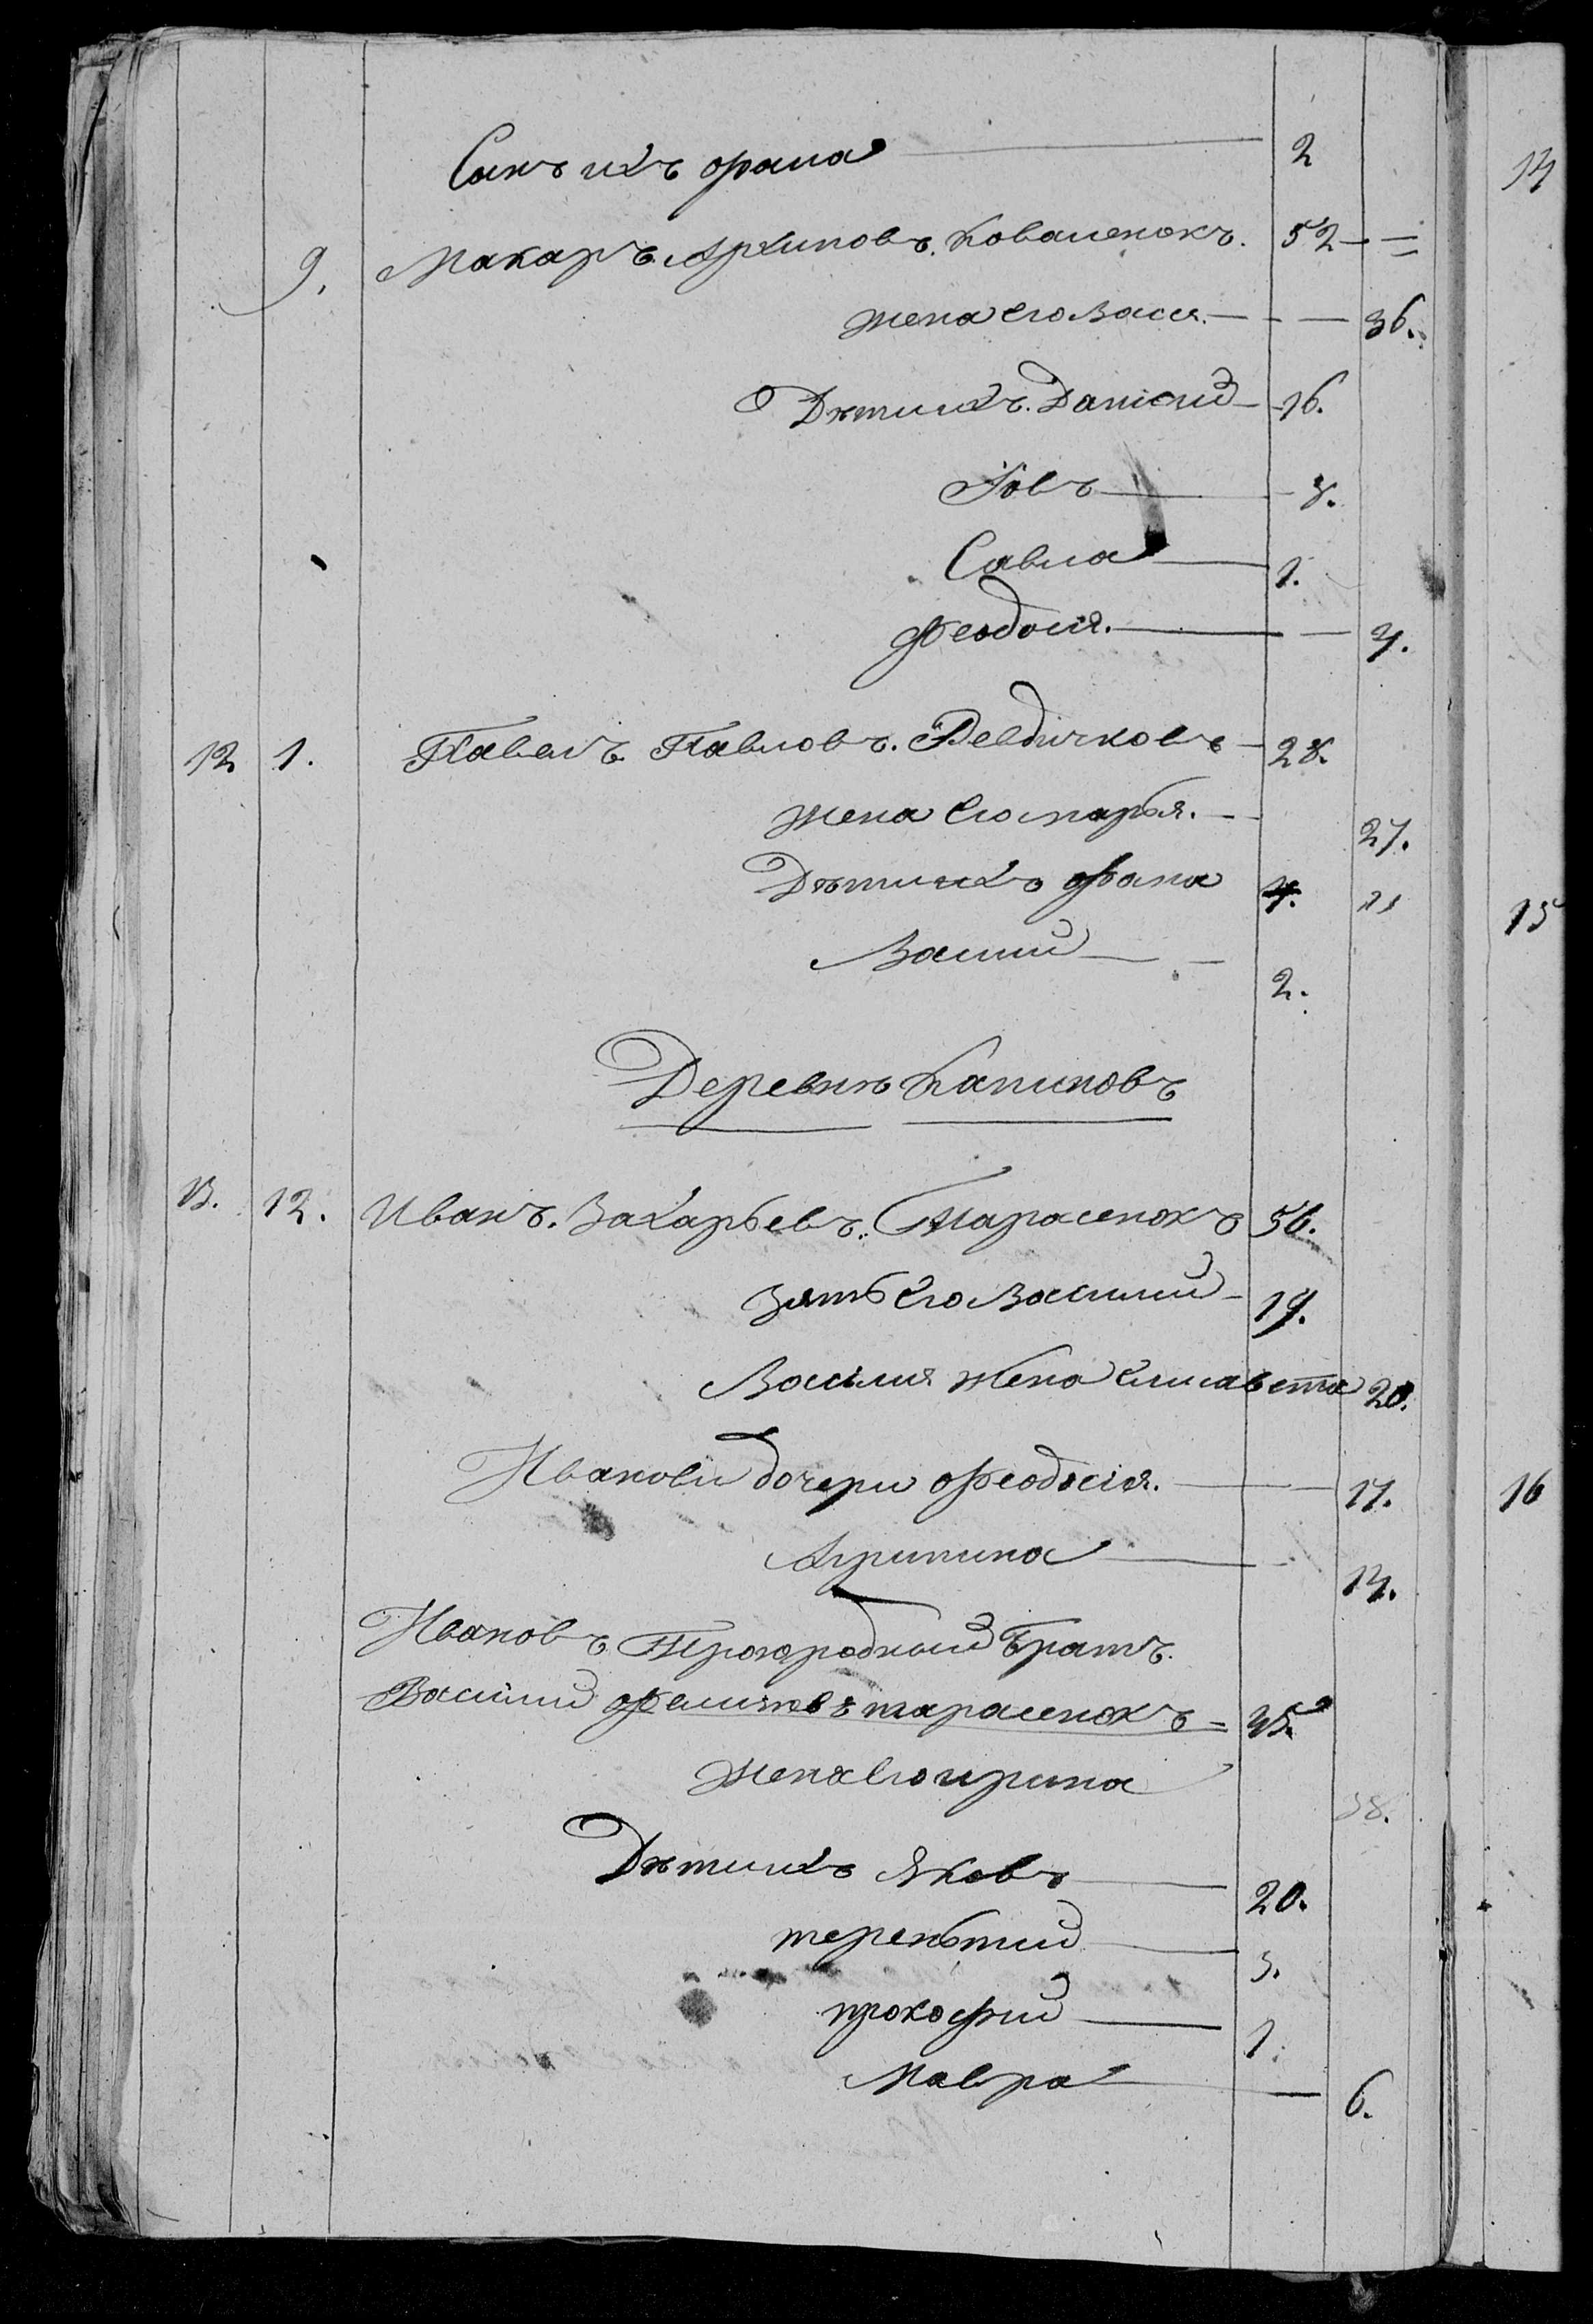 Сынъ ихъ фома 2
9. Макаръ Архиповъ Коваленокъ. 52
жена его Васса. 36.
Дѣти ихъ. Данiилъ 16.
Iовъ 8.
Савва 1.
Феодосiя. 4.
12 1. Павелъ Павловъ. 28.
жена его марья. 27.
Дѣти ихъ фома 4. 11
Василий 2.
Деревнѣ
13. 12. Иванъ. Захарьевъ. Тарасенокъ 56.
зять его Василий 19.
Василия жена Елисавета 20.
Ивановы дочери феодосiя. 17.
Агрипина 14.
Ивановъ Братъ.
Василий тарасенокъ 45
жена его ирина 38.
Дѣти ихъ Яковъ 20.
терентий 3.
прокофий 1.
Мавра 6.
14
15
16